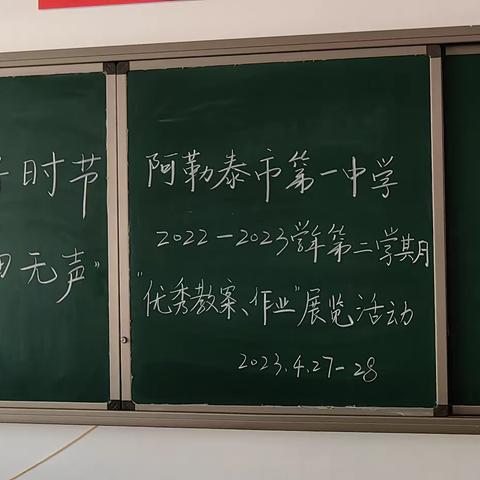 时节
无声”
阿勒泰市第一中学
2022-2023学年第二学期
“优秀教案、作业”展览活动
2023.4.27-28